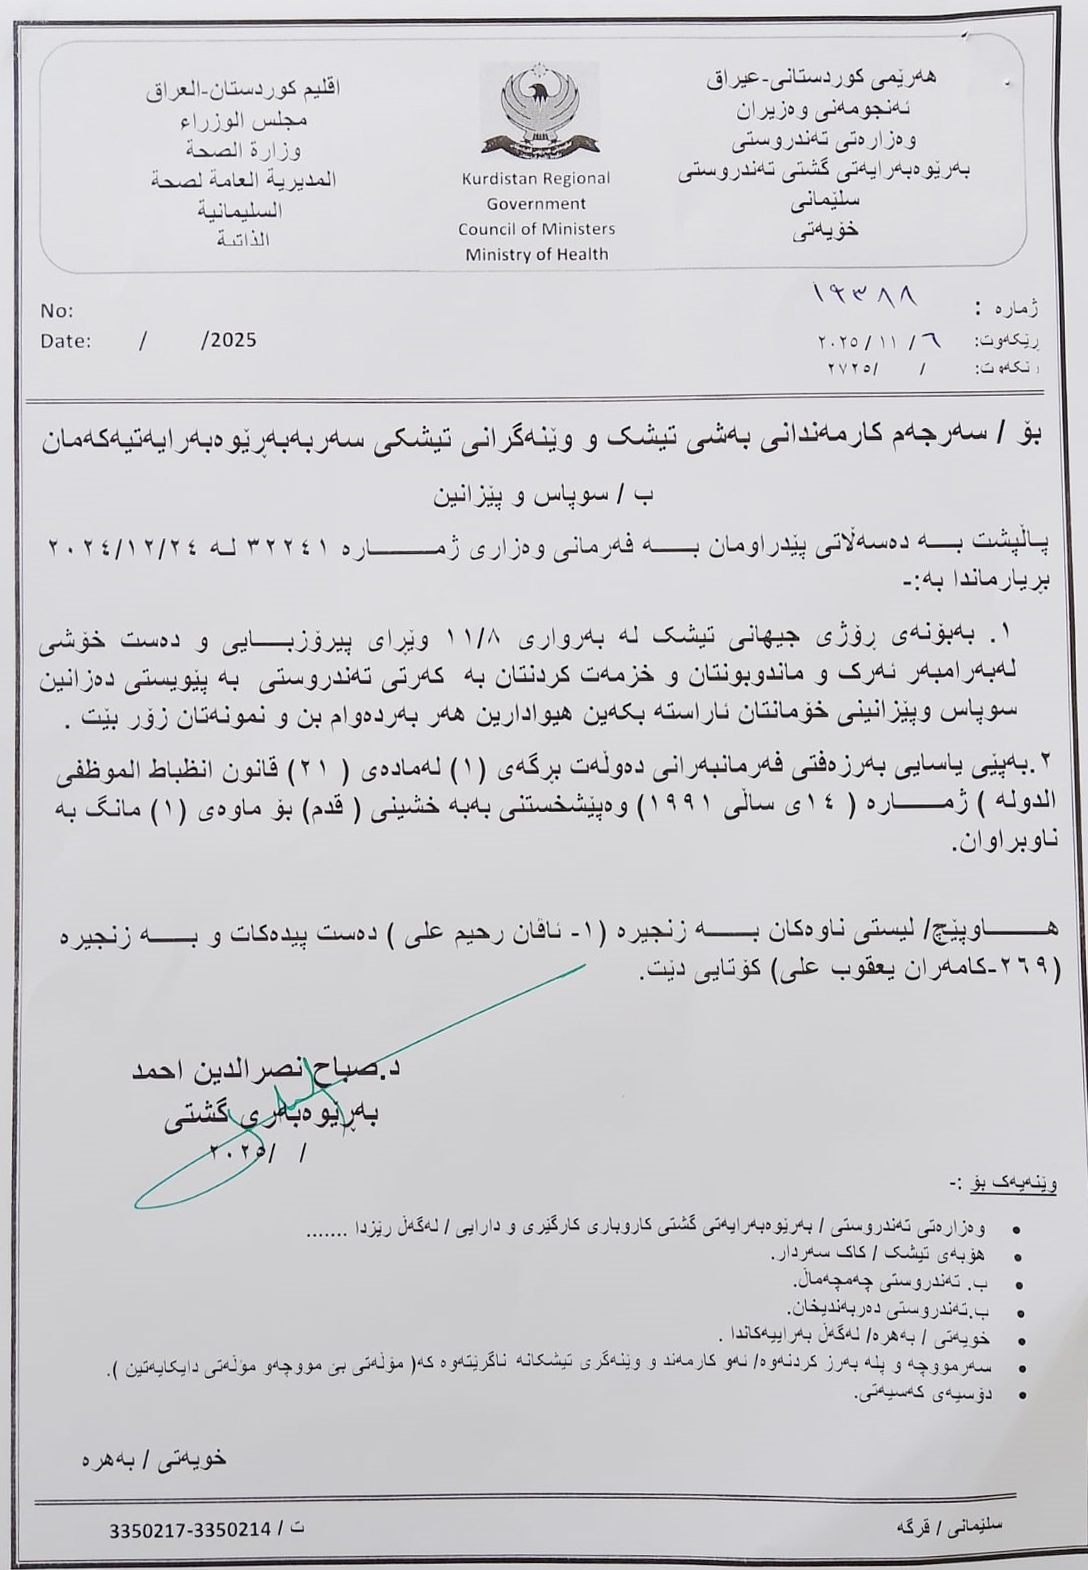 هەرێمی کوردستانی-عیراق
ئەنجومەنی وەزیران
وەزارەتی تەندروستی
بەرێوەبەرایەتی گشتی تەندروستی
سلێمانی
خۆیەتی
Kurdistan Regional
Government
Council of Ministers
Ministry of Health
اقليم كوردستان-العراق
مجلس الوزراء
وزارة الصحة
المديرية العامة لصحة
السليمانية
الذاتية
ژمارە : ١٩٣٨٨
رێکەوت: ٦ / ١١ / ٢٠٢٥
رێکەوت: / / ٢٧٢٥
No:
Date: / /2025
بۆ / سەرجەم کارمەندانی بەشی تیشک و وێنەگرانی تیشکی سەربەبەڕێوەبەرایەتیەکەمان
ب / سوپاس و پێزانین
پاڵپشت بە دەسەڵاتی پێدراومان بە فەرمانی وەزاری ژمارە ٣٢٢٤١ لە ٢٠٢٤/١٢/٢٤
بڕیارماندا بە:-
١. بەبۆنەی ڕۆژی جیهانی تیشک لە بەرواری ١١/٨ وێرای پیرۆزبایی و دەست خۆشی
لەبەرامبەر ئەرک و ماندوبونتان و خزمەت کردنتان بە کەرتی تەندروستی بە پێویستی دەزانین
سوپاس وپێزانینی خۆمانتان ئاراستە بکەین هیوادارین هەر بەردەوام بن و نمونەتان زۆر بێت .
٢.بەپێی یاسایی بەرزەفتی فەرمانبەرانی دەوڵەت برگەی (١) لەمادەی ( ٢١) قانون انظباط الموظفی
الدولە ) ژمارە ( ١٤ی ساڵی ١٩٩١) وەپێشخستنی بەبە خشینی ( قدم) بۆ ماوەی (١) مانگ بە
ناوبراوان.
هاوپێچ/ لیستی ناوەکان بە زنجیرە (١- ئاڤان رحیم علی ) دەست پیدەکات و بە زنجیرە
(٢٦٩-کامەران یعقوب علی) کۆتایی دێت.
د.صباح نصرالدین احمد
بەڕێوەبەری گشتی
/ /٢٠٢٥
وێنەیەک بۆ :-
• وەزارەتی تەندروستی / بەرێوەبەرایەتی گشتی کاروباری کارگێری و دارایی / لەگەڵ رێزدا .......
• هۆبەی تیشک / کاک سەردار.
• ب. تەندروستی چەمچەماڵ.
• ب.تەندروستی دەربەندیخان.
• خویەتی / بەهرە/ لەگەڵ بەراییەکاندا .
• سەرمووچە و پلە بەرز کردنەوە/ ئەو کارمەند و وێنەگری تیشکانە ناگرێتەوە کە( مۆڵەتی بێ مووچەو مۆڵەتی دایکایەتین ).
• دۆسیەی کەسیەتی.
خویەتی / بەهرە
سلێمانی / قرگە
ت / 3350214-3350217